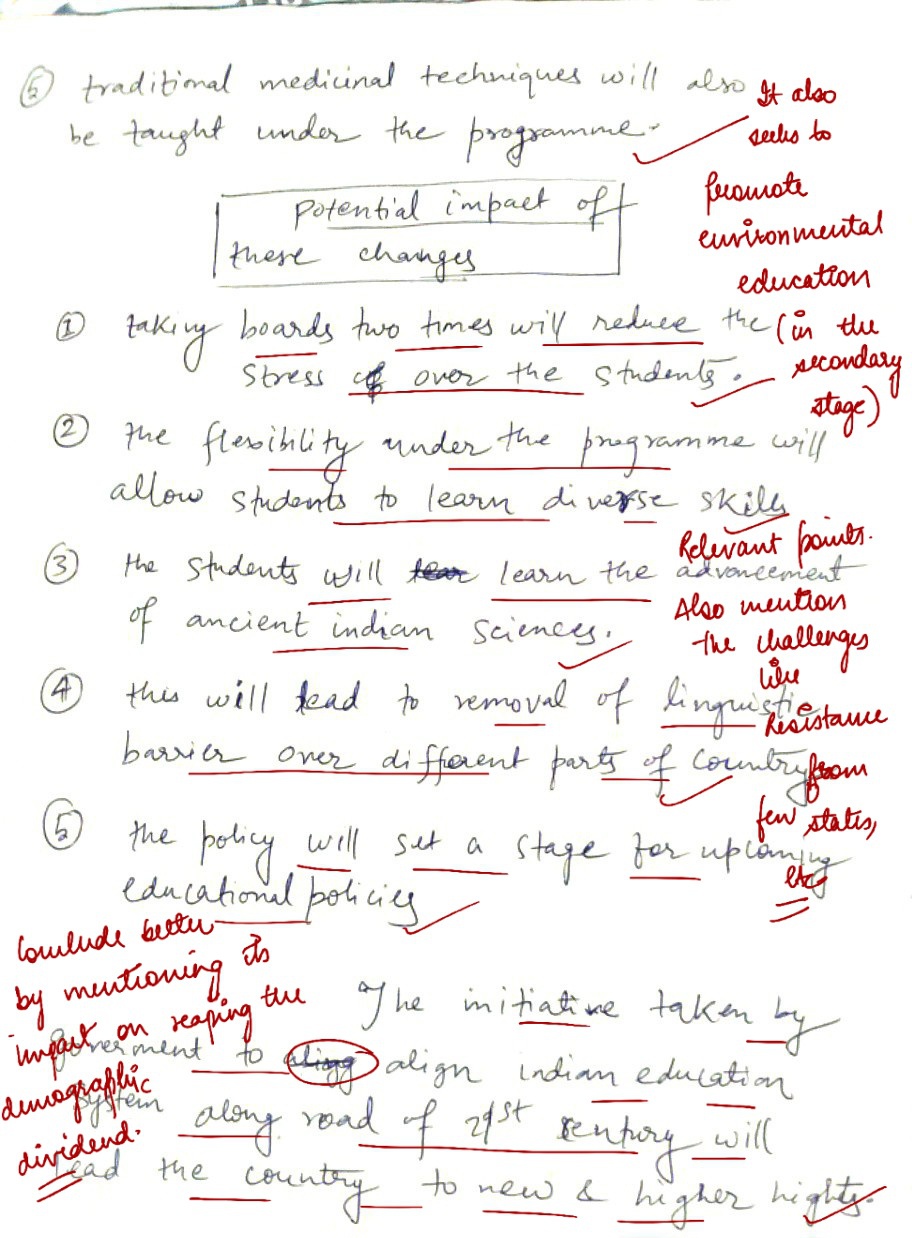 ⑤ traditional medicinal techniques will also
be taught under the programme.
It also
seeks to
promote
environmental
education
(in the
secondary
stage)
Potential impact of
these changes
① taking boards two times will reduce the
stress of over the students.
② the flexibility under the programme will
allow students to learn diverse skills
③ the students will learn the advancement
of ancient indian sciences.
Relevant points.
Also mention
the challenges
like
Resistance
from
few states,
etc
④ this will lead to removal of linguistic
barrier over different parts of country
⑤ the policy will set a stage for upcoming
educational policies
Conclude better
by mentioning its
impact on reaping the
demographic
dividend.
The initiative taken by
goverment to align indian education
system along road of 21st century will
lead the country to new & higher hights.